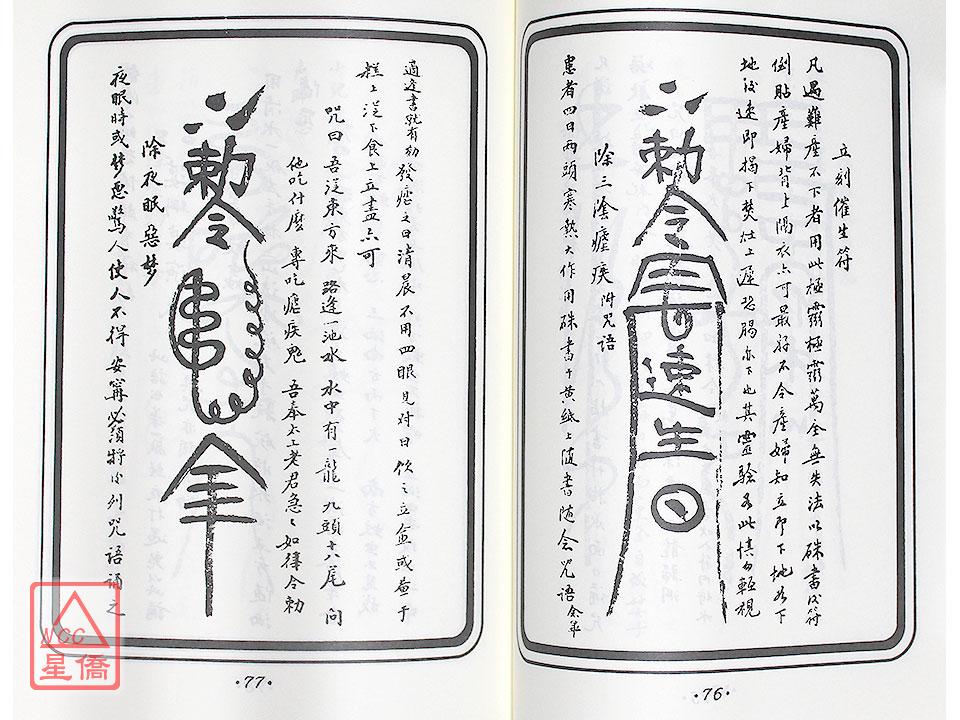 立刻催生符
凡遇難產不下者用此極靈極靈萬全無失法以硃書此符
倒貼產婦背上隔衣亦可最好不令產婦知立即下地若下
地後速即揭下焚灶上遲恐腸亦下也其靈驗多此慎勿輕視
勅令
速生
除三陰瘧疾附咒語
患者四日兩頭寒熱大作用硃書于黃紙上隨書隨念咒語
·76·
適逢書就有効發瘧之日清晨不用四眼見对日飲之立愈或叠于
糕上從下食上立盡亦可
咒曰 吾從東方來 路逢一池水 水中有一龍 九頭十八尾 問
他吃什麼 專吃瘧疾鬼 吾奉太上老君急々如律令勅
勅令
除夜眠惡梦
夜眠時或梦惡驚人使人不得安寗必須將此列咒語誦之
·77·
NCC
星僑